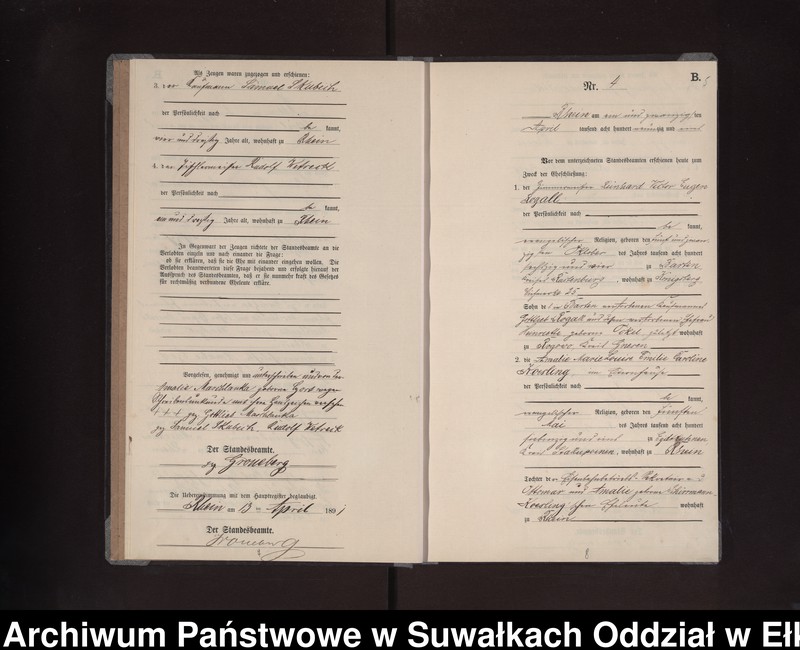 Als Zeugen waren zugezogen und erschienen:
3. der Kaufmann Samuel Skubich
der Persönlichkeit nach
be kannt,
vier und dreißig Jahre alt, wohnhaft zu Rhein
4. der Rudolf Wetreck
der Persönlichkeit nach
be kannt,
ein und dreißig Jahre alt, wohnhaft zu Rhein
In Gegenwart der Zeugen richtete der Standesbeamte an die
Verlobten einzeln und nach einander die Frage:
ob sie erklären, daß sie die Ehe mit einander eingehen wollen. Die
Verlobten beantworteten diese Frage bejahend und erfolgte hierauf der
Ausspruch des Standesbeamten, daß er sie nunmehr kraft des Gesetzes
für rechtmäßig verbundene Eheleute erkläre.
Vorgelesen, genehmigt und unterschrieben und von der
Amalie geborene wegen
Schreibensunkunde mit ihren Handzeichen versehen
+++ gez Gottlieb
gez Samuel Skubich Rudolf Wetreck
Der Standesbeamte.
gez Groneberg
Die Uebereinstimmung mit dem Hauptregister beglaubigt.
Rhein am 13 ten April 1891
Der Standesbeamte.
Groneberg
B.
Nr. 4
Rhein am ein und zwanzig ten
April tausend acht hundert neunzig und eins
Vor dem unterzeichneten Standesbeamten erschienen heute zum
Zweck der Eheschließung:
1. der Zimmermeister Reinhard Victor Eugen
Rogall
der Persönlichkeit nach
be kannt,
evangelischer Religion, geboren den fünf und zwan
zigsten Oktober des Jahres tausend acht hundert
sechszig und vier zu Barten
Kreis Rastenburg, wohnhaft zu Königsberg
25
Sohn des in Barten verstorbenen
Gottlieb Rogall und dessen Ehefrau
Henriette geborene jetzt wohnhaft
zu Rogowo Kreis
2. die Amalie Marie Louise Emilie Caroline
der Persönlichkeit nach
be kannt,
evangelischer Religion, geboren den fünften
Mai des Jahres tausend acht hundert
siebenzig und eins zu Eydtkuhnen
Kreis Stallupoenen, wohnhaft zu Rhein
Tochter der
Ottomar und Amalie geborene
Eheleute wohnhaft
zu Rhein
8
8
Archiwum Państwowe w Suwałkach Oddział w Ełk